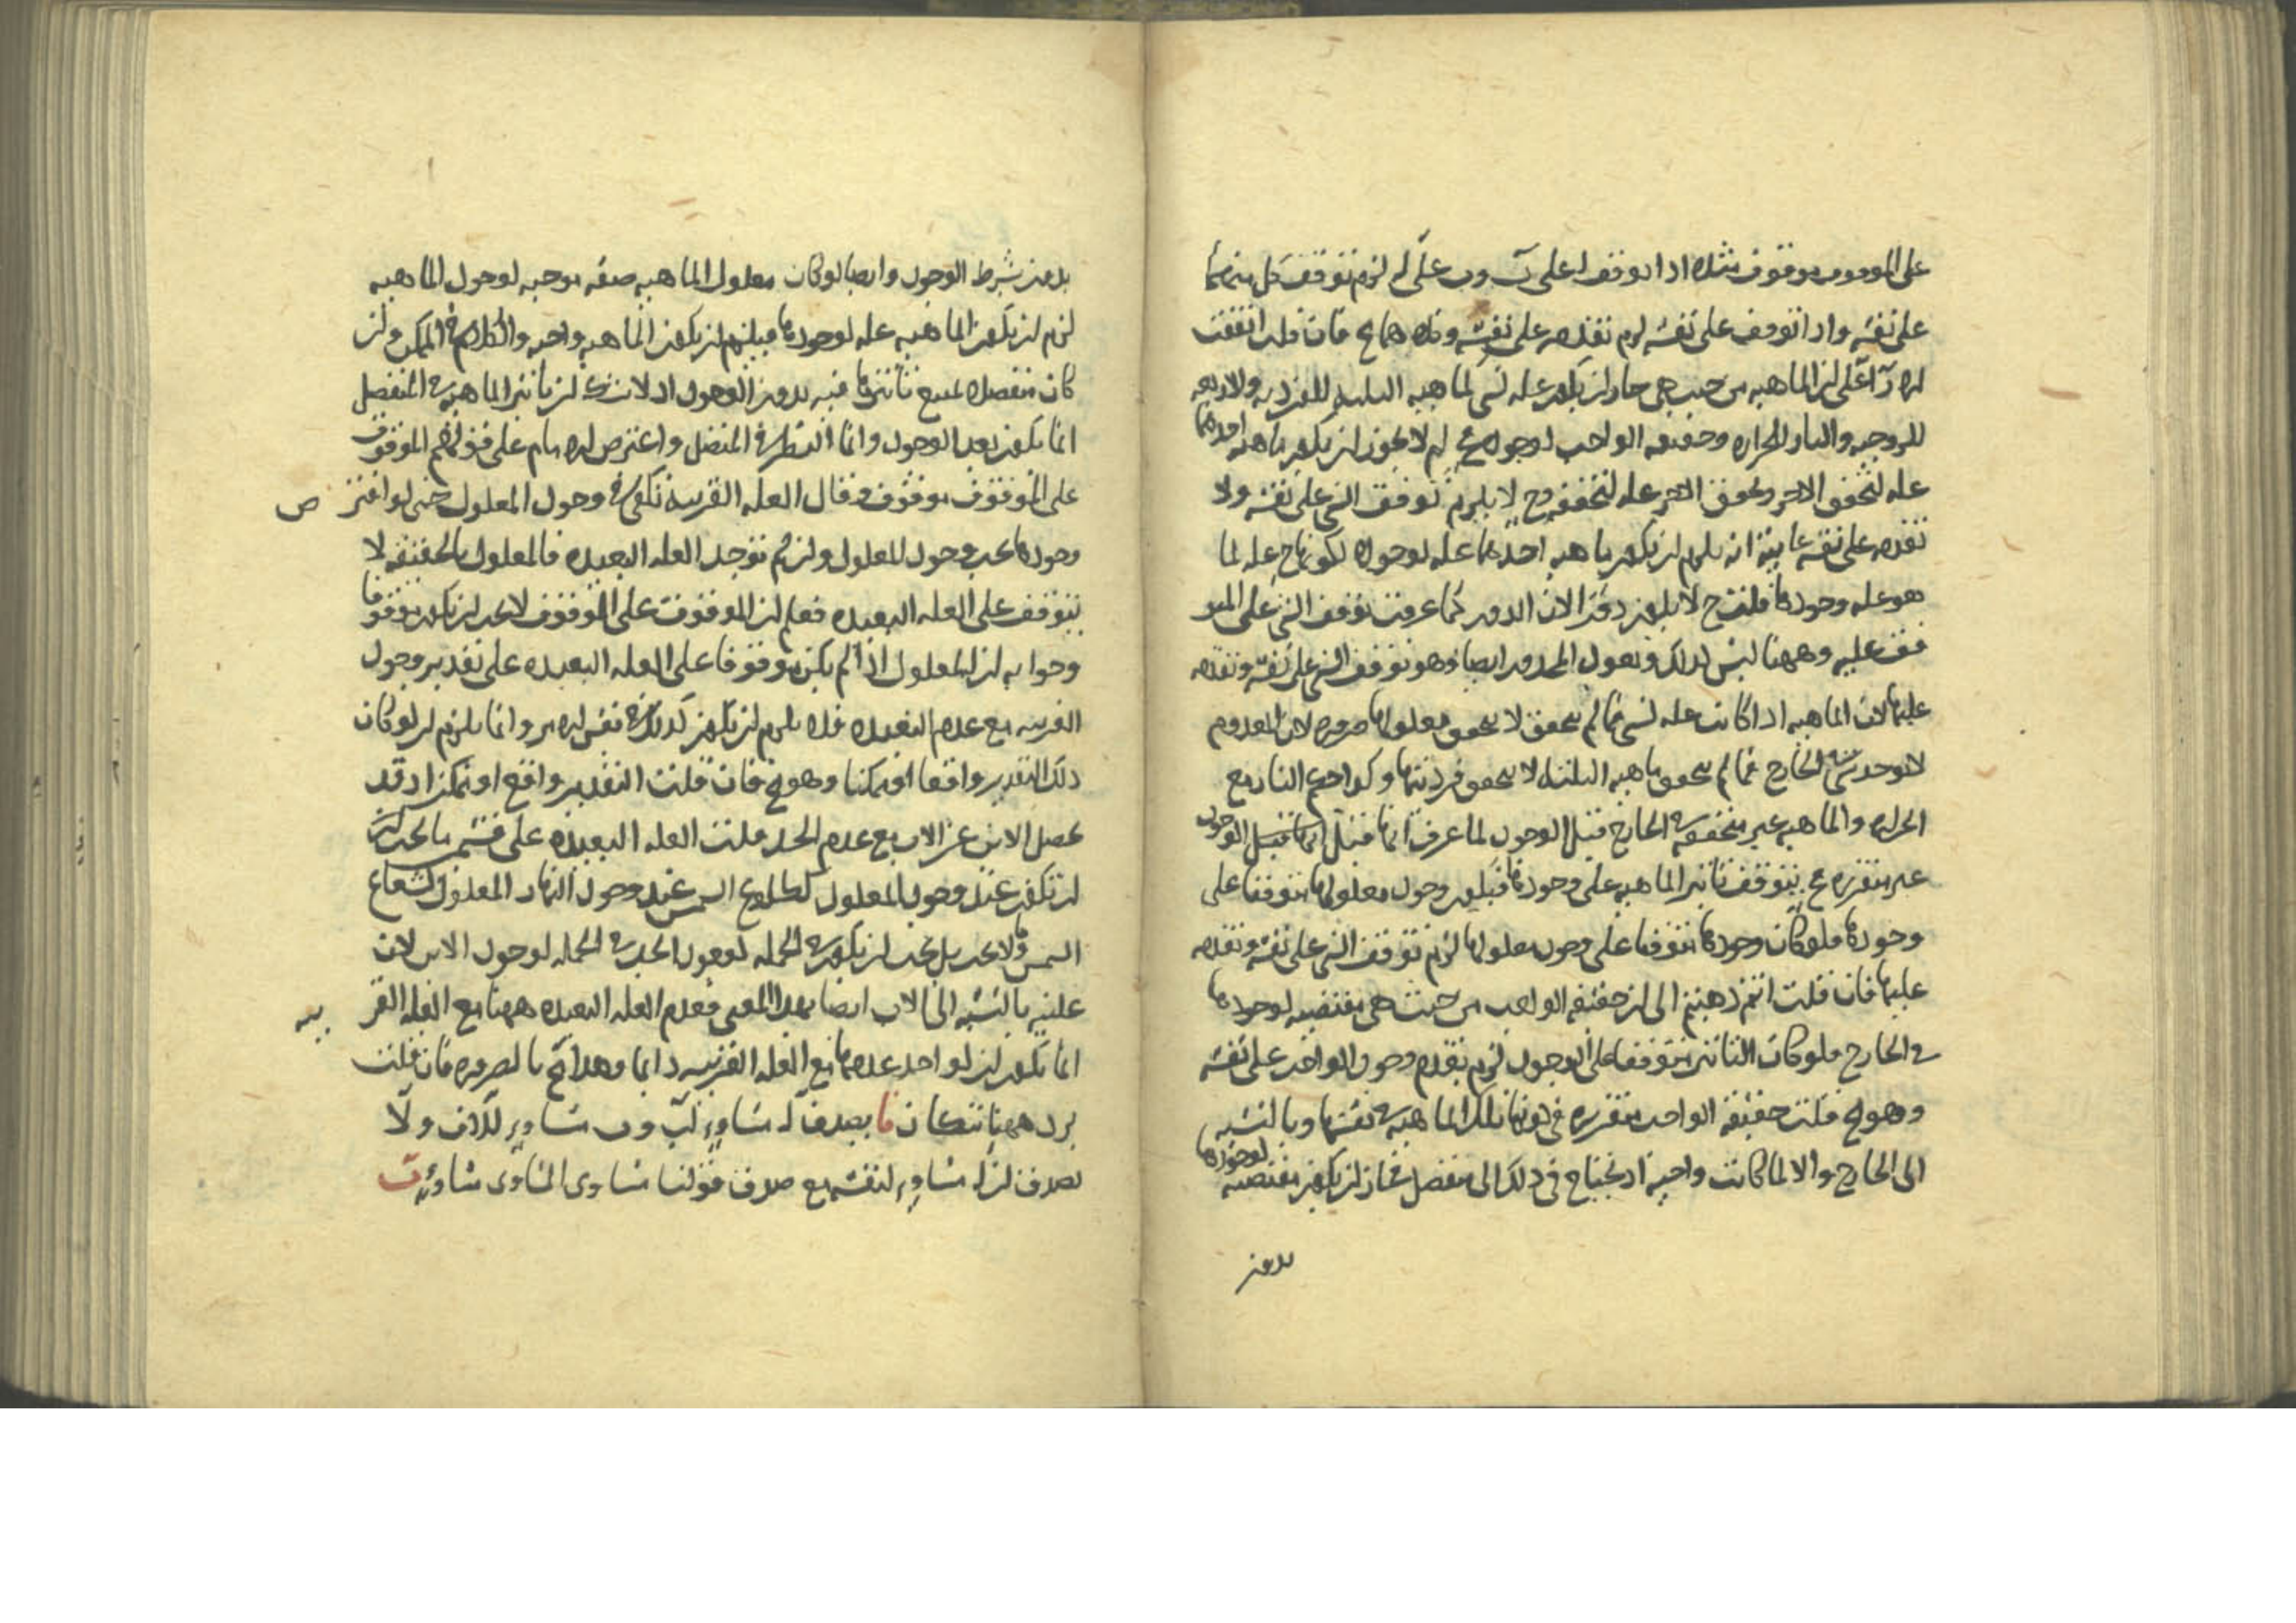 على الموقوف موقوف مثلا اذا توقف ا على ب وب على ا لزم توقف كل منهما
على نفسه واذا توقف على نفسه لزم تقدمه على نفسه وكلاهما مح فان قلت اتفقت
الآراء على ان الماهية من حيث هي جاز ان يكون علة لشي كماهية الثلثية للفردية والاربعة
للزوجية والنار للحرارة وحقيقة الواجب لوجوده لم لا يجوز ان يكون ماهية احدهما
علة لتحقق الاخر وتحقق الاخر علة لتحققه وح لا يلزم توقف الشي على نفسه ولا
تقدمه على نفسه غايته انه يلزم ان يكون ماهية احدهما علة لوجوده لكونها ح علة لما
هو علة وجودها قلت ح لا يكون دورا لان الدور كما عرفت توقف الشي على المتو
قف عليه وههنا ليس كذلك ونقول المحدور ايضا وهو توقف الشي على نفسه وتقدمه
عليها لان الماهية اذا كانت علة لشي فما لم يتحقق لا يتحقق معلولها ضرورة لان المعدوم
لا يوجد شي في الخارج فما لم يتحقق ماهية الثلثة لا يتحقق فرديتها وكذا حكم النار مع
الحرارة والماهية غير متحققة في الخارج قبل الوجود لما عرفت انها قبل الوجود
غير متقررة ح يتوقف تاثير الماهية على وجودها فيكون وجود معلولها متوقفا على
وجودها فلو كان وجودها متوقفا على وجود معلولها لزم توقف الشي على نفسه وتقدمه
عليها فان قلت انتم ذهبتم الى ان حقيقة الواجب من حيث هي مقتضية لوجودها
في الخارج فلو كان التاثير متوقفا على الوجود لزم تقدم وجود الواجب على نفسه
وهو مح قلت حقيقة الواجب متقررة في كونها تلك الماهية في نفسها وبالنسبة
الى الخارج والا لما كانت واجبة اذ تحتاج في ذلك الى منفصل فجاز ان يكون مقتضية لوجودها
بدون
بدون شرط الوجود وايضا لو كان معلول الماهية صفة موجبة لوجود الماهية
لزم ان يكون الماهية علة لوجودها فيلزم ان يكون الماهية واجبة والكلام في الممكن وان
كان منفصلا يمتنع تاثيرها فيه بدون الوجود اذ لا شك ان تاثير الماهية في المنفصل
انما يكون بعد الوجود وانما النظر في المتصل واعترض الامام على قولهم الموقوف
على الموقوف موقوف وقال العلة القريبة تكفي في وجود المعلول حتى لو افترض
وجودها يجب وجود المعلول وان لم توجد العلة البعيدة فالمعلول بالحقيقة لا
يتوقف على العلة البعيدة فعلم ان الموقوف على الموقوف لا يجب ان يكون موقوفا
وجوابه ان المعلول اذا لم يكن موقوفا على العلة البعيدة على تقدير وجود
القريبة مع عدم البعيدة فلا يلزم ان يكون كذلك في نفس الامر وانما يلزم ان لو كان
ذلك التقدير واقعا او ممكنا وهو مح فان قلت التقدير واقع او ممكن اذ قد
يحصل الابن عن الاب مع عدم الجد قلت العلة البعيدة على قسمين ما يجب
ان تكون عند وجود المعلول كطلوع الشمس عند وجود النهار المعلول لشعاع
الشمس وما لا يجب بل يجب ان يكون في الجملة لوجود الجد في الجملة لوجود الابن لان
عليته بالنسبة الى الاب ايضا بهذا المعنى فعدم العلة البعيدة ههنا مع العلة القريبة
انما يكون ان لو اخذ عدمها مع العلة القريبة دائما وهذا مح بالضرورة فان قلت
يرد ههنا شكان فا يصدق ا مساو لب وب مساو لا ولا
يصدق ان ا مساو لنفسه مع صدق قولنا مساوي المساوي مساو ب